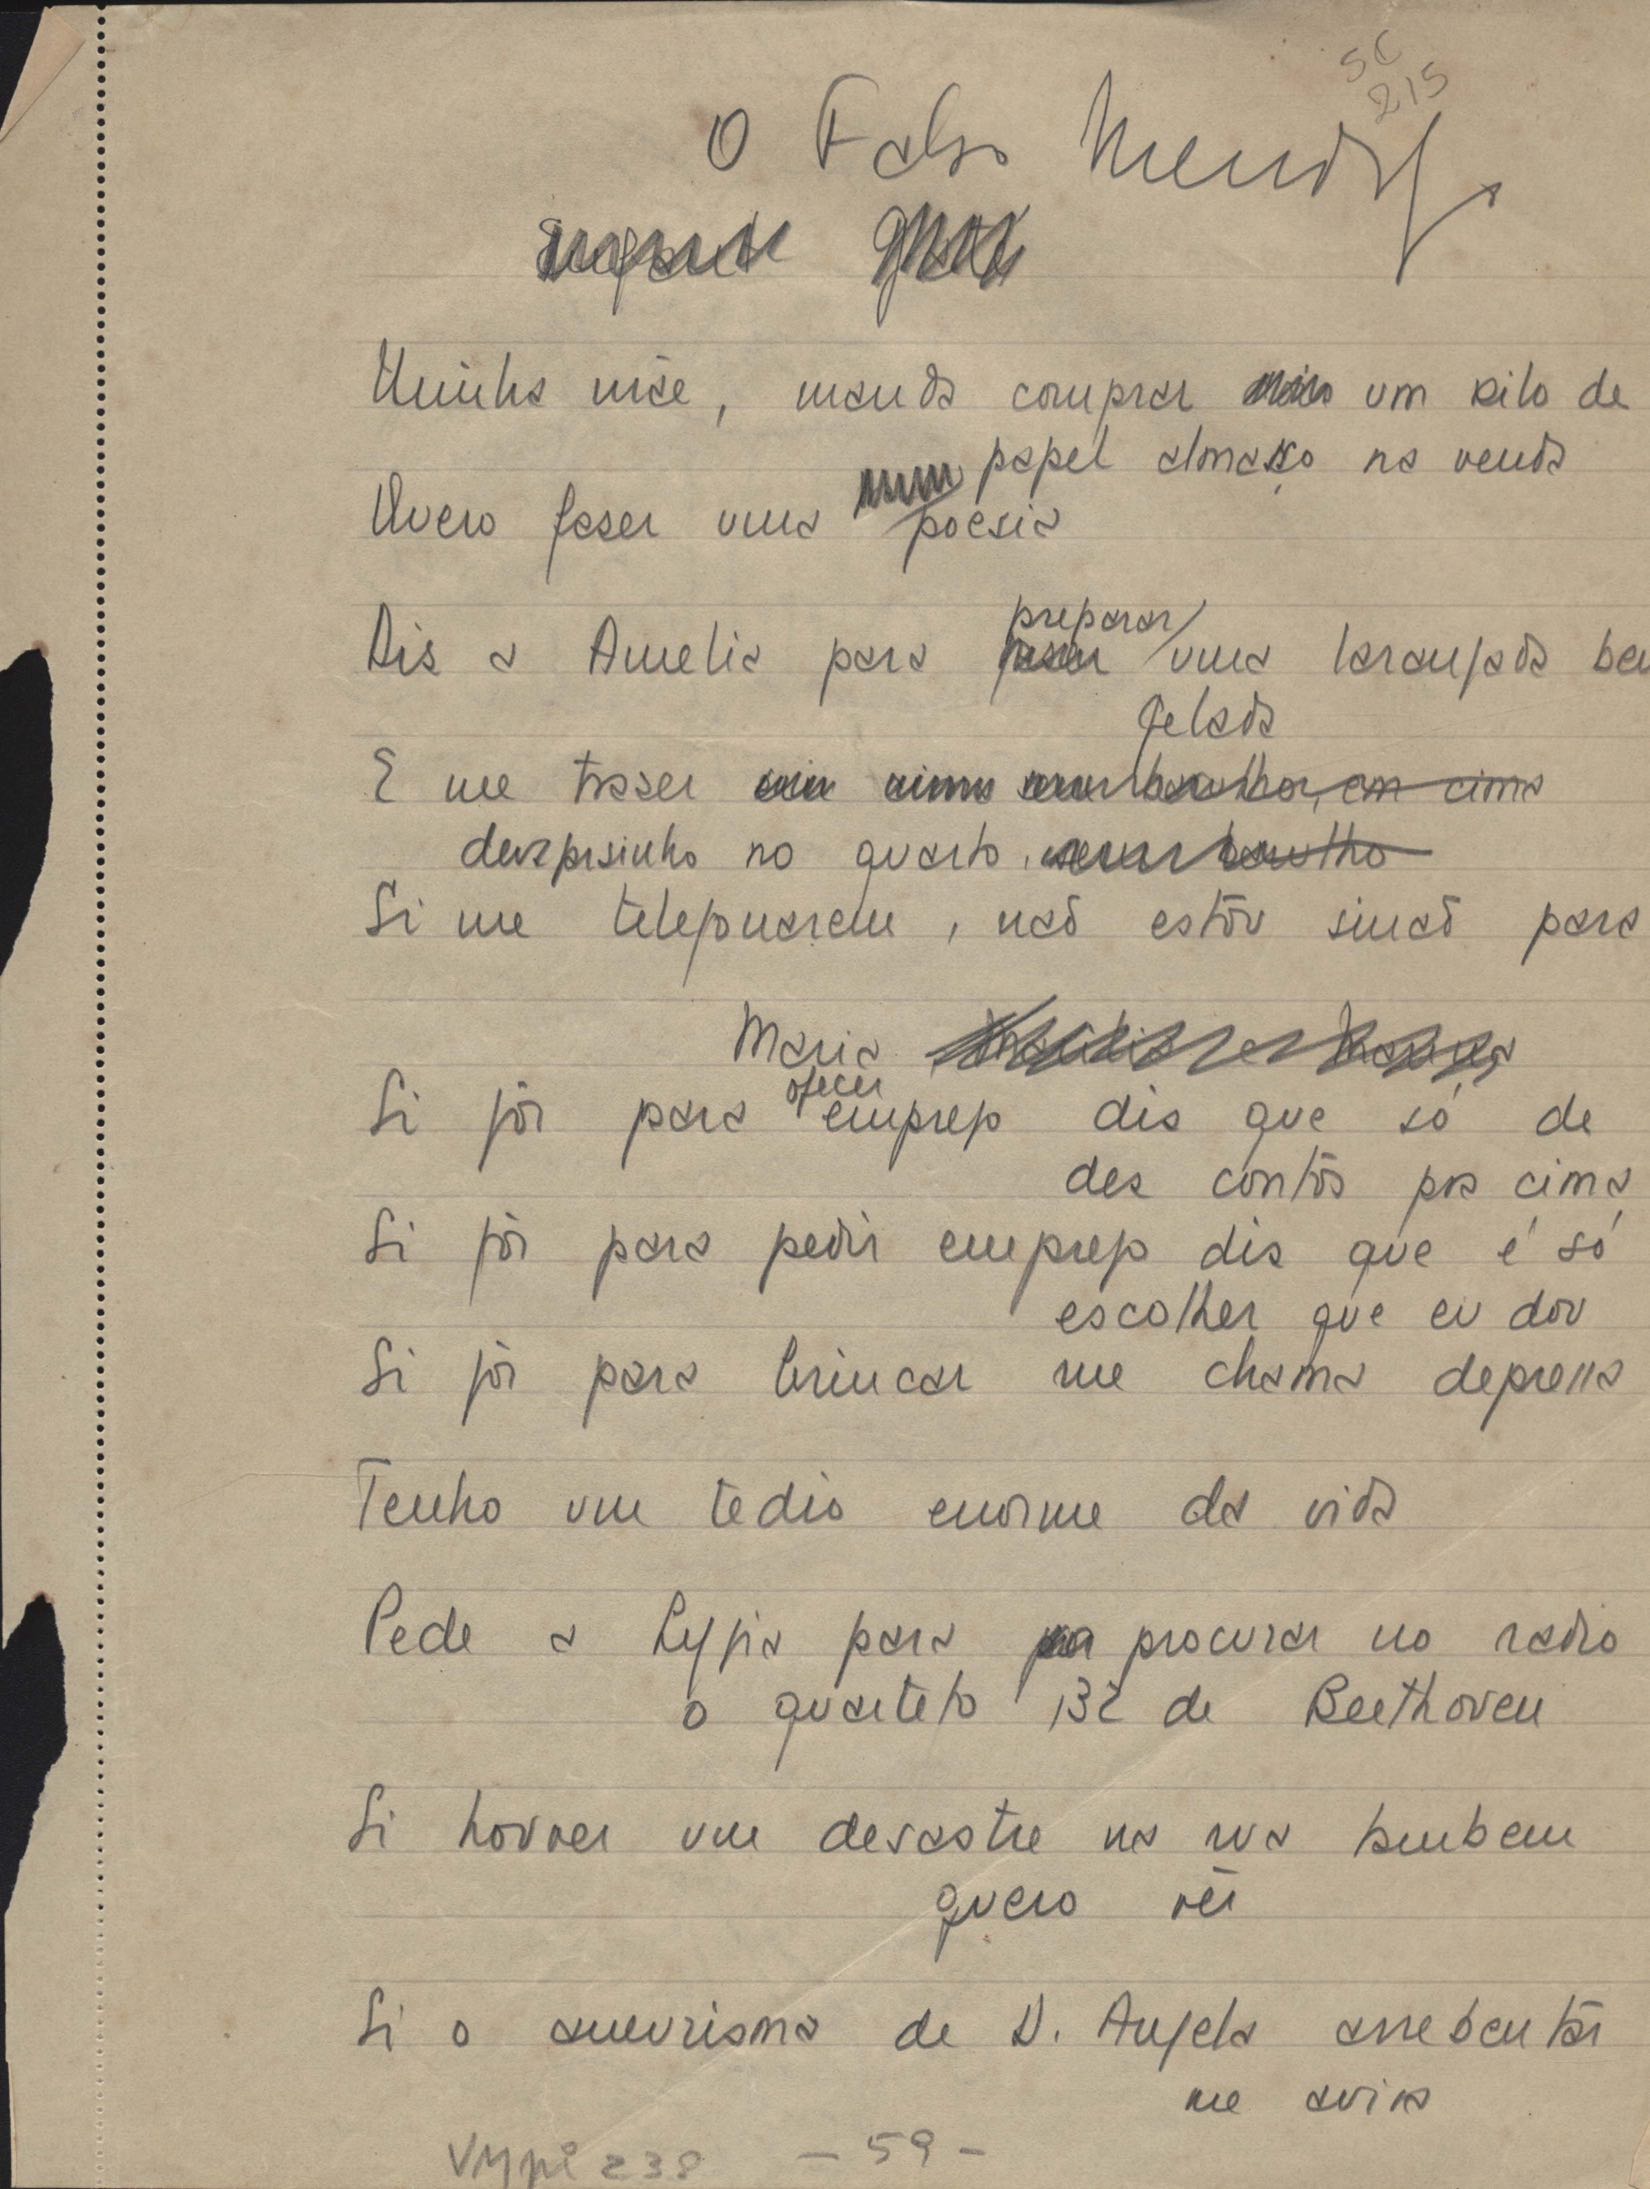 SC
215
O Falso Mendigo
Minha mãe, manda comprar um kilo de
papel almaço na venda
Quero faser uma poesia
preparar
Dis a Amelia para uma laranjada bem
gelada
E me traser em cima
devagarsinho no quarto, sem barulho
Si me telefonarem, naõ estôu sinaõ para
Maria
ofecer
Si fôr para emprego dis que só de
dez contôs pra cima
Si fôr para pedir emprego dis que é só
escolher que eu dou
Si fôr para brincar me chama depressa
Tenho um tedio enorme da vida
Pede a Lygia para procurar no radio
o quarteto 132 de Beethoven
Si houver um desastre na rua tambem
quero vêr
Si o aneurisma de D. Angela arrebentár
me avisa
VMpi 238 - 59 -